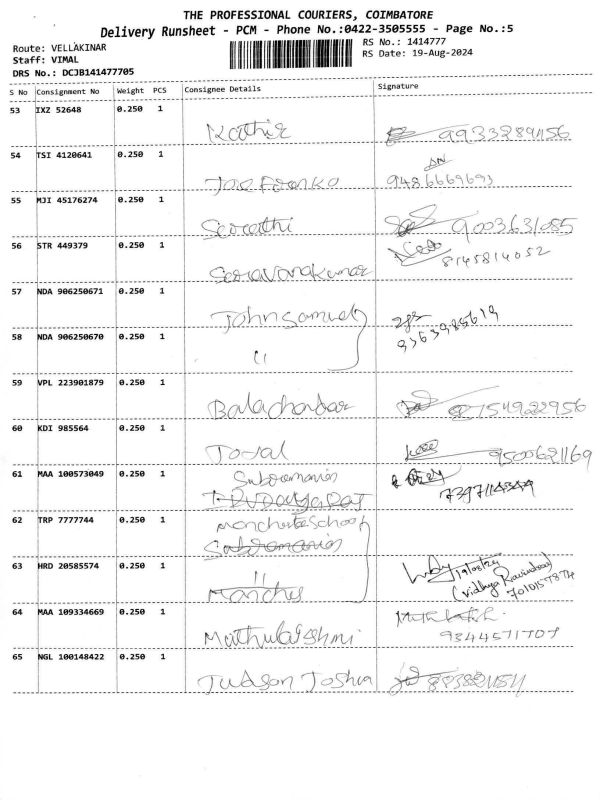 THE PROFESSIONAL COURIERS, COIMBATORE
Delivery Runsheet - PCM - Phone No.:0422-3505555 - Page No.:5
Route: VELLAKINAR
RS No.: 1414777
Staff: VIMAL
RS Date: 19-Aug-2024
DRS No.: DCJB141477705
S No Consignment No Weight PCS Consignee Details Signature
53 IXZ 52648 0.250 1
Kathir 9933289456
54 TSI 4120641 0.250 1
Joe Franko 9486669693
55 MJI 45176274 0.250 1
9003631085
56 STR 449379 0.250 1
Saravanakumar 8145814052
57 NDA 906250671 0.250 1
John samuel 9363985619
58 NDA 906250670 0.250 1
"
59 VPL 223901879 0.250 1
Balachandar 7154922956
60 KDI 985564 0.250 1
9500621169
61 MAA 100573049 0.250 1
Subramanian
62 TRP 7777744 0.250 1
Manchester School
Subramanian
63 HRD 20585574 0.250 1
" 19/08/24
Manches (Vidhya Ravindran)
64 MAA 109334669 0.250 1
Mathulakshmi 9344571707
65 NGL 100148422 0.250 1
Judson Joshua